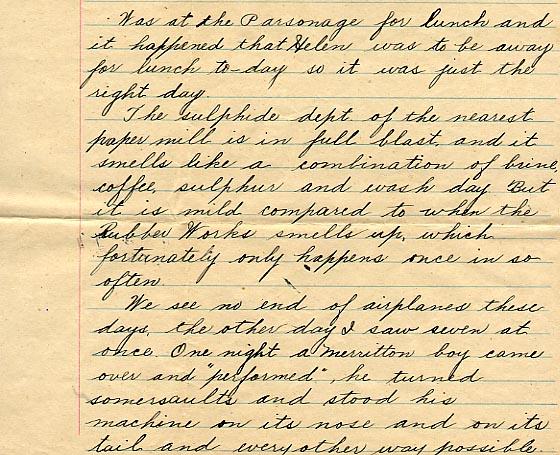 Was at the Parsonage for lunch and
it happened that Helen was to be away
for lunch to-day so it was just the
right day.
The sulphide dept. of the nearest
paper mill is in full blast, and it
smells like a combination of brine,
coffee, sulphur and wash day. But
it is mild compared to when the
Rubber Works smells up, which
fortunately only happens once in so
often.
We see no end of airplanes these
days, the other day I saw seven at
once. One night a Merritton boy came
over and "performed", he turned
somersaults and stood his
machine on its nose and on its
tail and every other way possible.